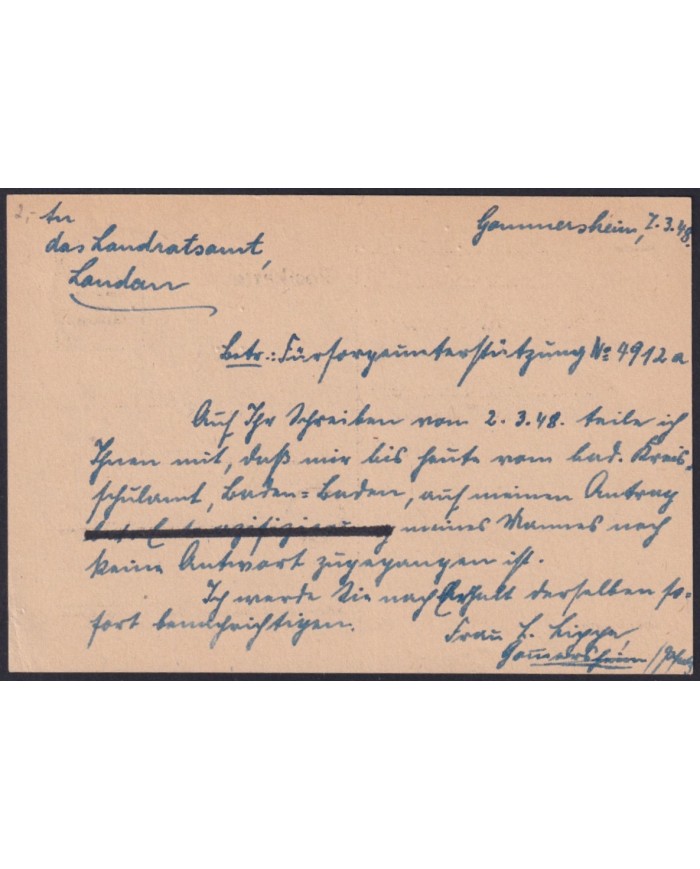 2,-
An
das Landratsamt,
Landau
Gommersheim, 7.3.48.
Betr.: Fürsorgeunterstützung No 4912a
Auf Ihr Schreiben vom 2.3.48. teile ich
Ihnen mit, daß mir bis heute vom bad. Kreis-
schulamt, Baden=Baden, auf meinen Antrag
meines Mannes noch
keine Antwort zugegangen ist.
Ich werde Sie nach Erhalt derselben so-
fort benachrichtigen.
Frau Lippe,
Gommersheim /Pfalz